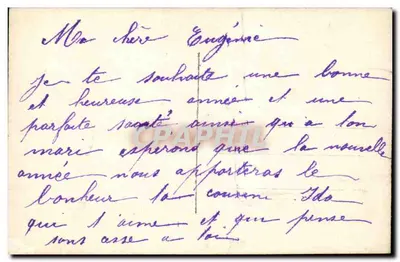 Ma chère Eugénie
Je te souhaite une bonne
et heureuse année et une
parfaite santé ainsi qu'a ton
mari esperons que la nouvelle
année nous apporteras le
bonheur ta cousine Ida
qui t'aime et qui pense
sans asse a toi
CPAPHIL